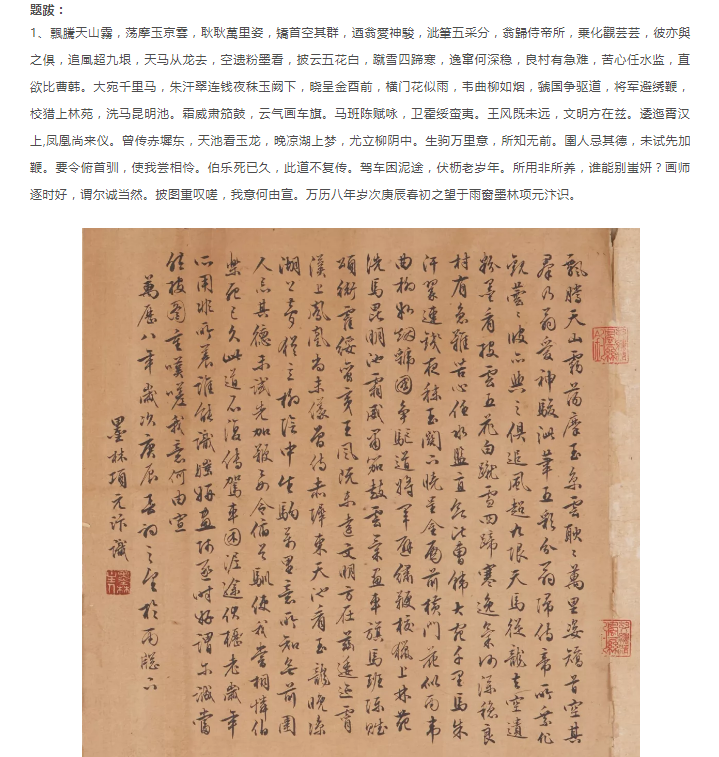 题跋：
1、飘騰天山霧，荡摩玉京雲，耿耿萬里姿，矯首空其群，迺翁愛神駿，泚筆五采分，翁歸侍帝所，乗化觀芸芸，彼亦與
之俱，追風超九垠，天马从龙去，空遗粉墨看，披云五花白，蹴雪四蹄寒，逸窜何深稳，良村有急难，苦心任水监，直
欲比曹韩。大宛千里马，朱汗翠连钱夜秣玉阙下，晓呈金酉前，横门花似雨，韦曲柳如烟，虢国争驱道，将军避绣鞭，
校猎上林苑，洗马昆明池。霜威肃笳鼓，云气画车旗。马班陈赋咏，卫霍绥蛮夷。王风既未远，文明方在兹。逶迤霄汉
上,凤凰尚来仪。曾传赤墀东，天池看玉龙，晚凉湖上梦，尤立柳阴中。生驹万里意，所知无前。圉人忌其德，未试先加
鞭。要令俯首驯，使我尝相怜。伯乐死已久，此道不复传。驾车困泥途，伏枥老岁年。所用非所养，谁能别蚩妍？画师
逐时好，谓尔诚当然。披图重叹嗟，我意何由宣。万历八年岁次庚辰春初之望于雨窗墨林项元汴识。
飘騰天山霧荡摩玉京雲耿耿萬里姿矯首空其
羣乃翁愛神駿泚筆五彩分翁歸侍帝所乗化
觀芸芸彼亦與之俱追風超九垠天馬從龍去空遺
粉墨看披雲五花白蹴雪四蹄寒逸氣何深穩良
村有急難苦心任水監直欲比曹韩大宛千里馬朱
汗翠連錢夜秣玉闕下曉呈金酉前横門花似雨韦
曲柳如烟虢國争驅道將軍避繡鞭校獵上林苑
洗馬昆明池霜威肅笳鼓雲氣画車旗馬班陈賦
頌衛霍綏蛮夷王風既未遠文明方在兹逶迤霄
漢上鳳凰尚来儀曾传赤墀東天池看玉龍晚涼
湖上夢猶立柳陰中生駒萬里意所知無前圉
人忌其德未試先加鞭要令俯首馴使我嘗相憐伯
樂死已久此道不復傳駕車困泥途伏櫪老歲年
所用非所養誰能識媸妍画師逐時好謂尔誠當
然披图重嘆嗟我意何由宣
萬曆八年歲次庚辰春初之望於雨窓下
墨林項元汴識